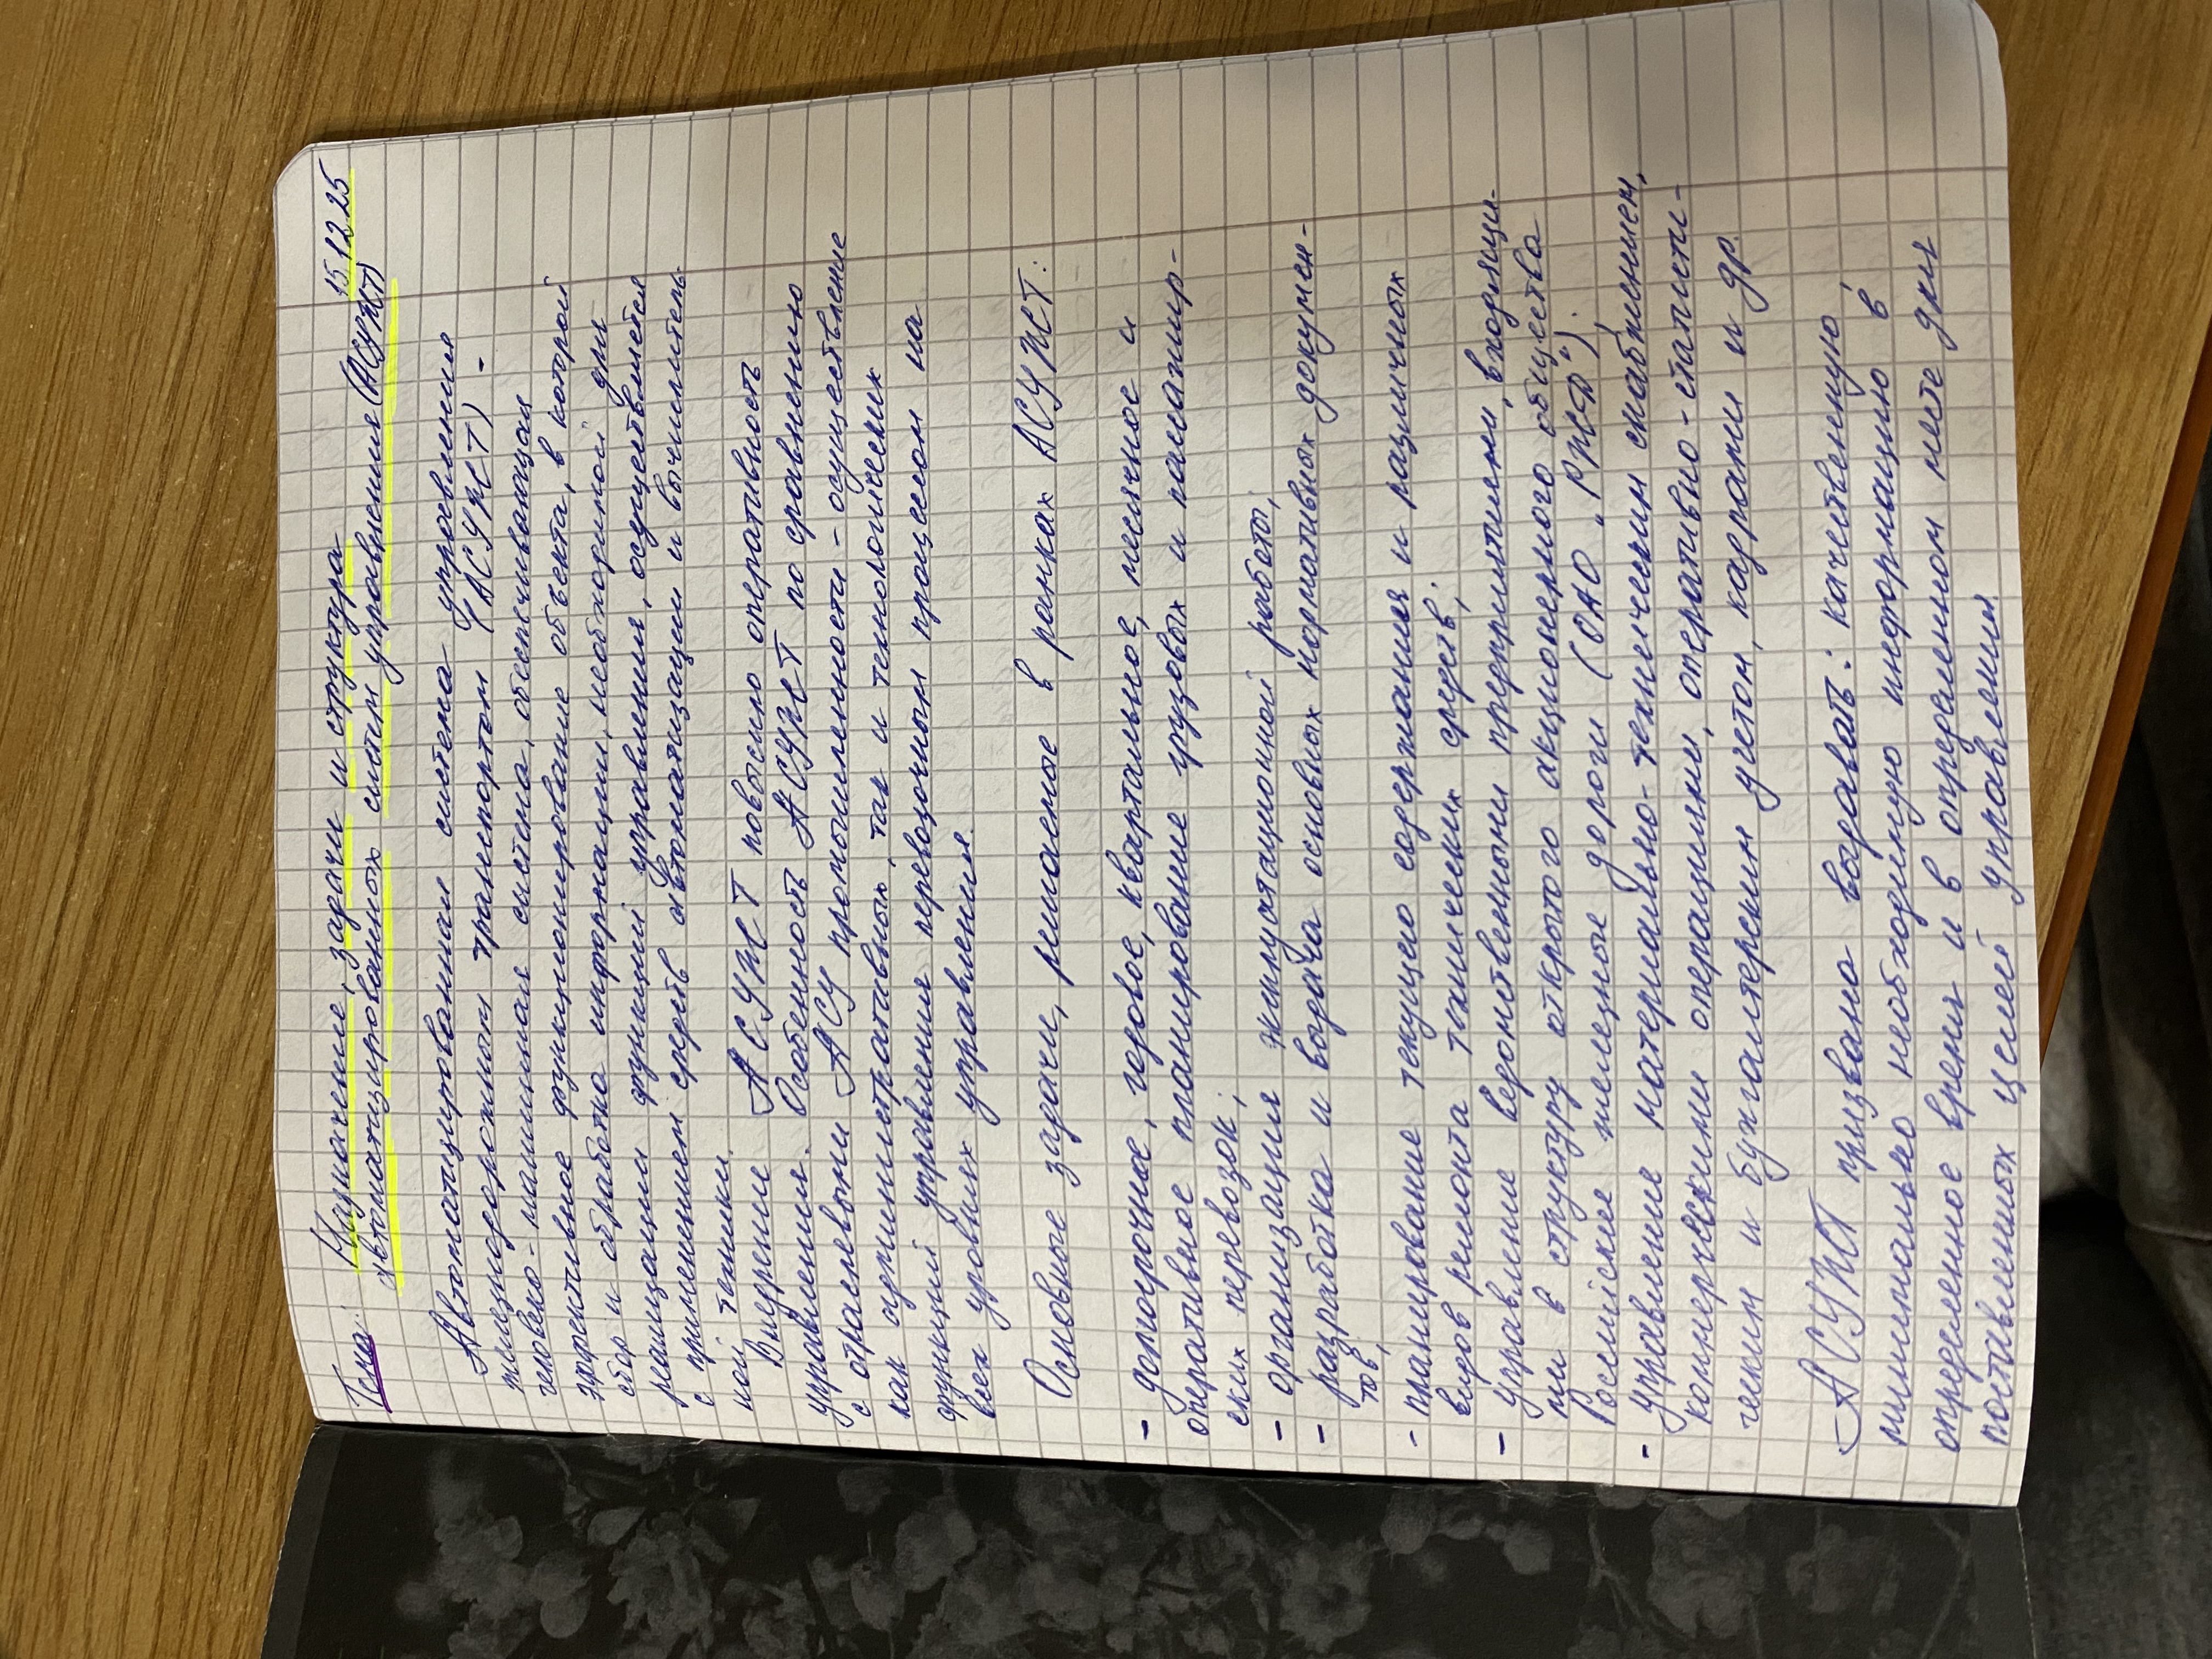 15.12.25
Тема: Назначение, задачи и структура
автоматизированных систем управления (АСУЖТ)
Автоматизированная система управления
железнодорожном транспортом (АСУЖТ) -
человеко-машинная система, обеспечивающая
эффективное функционирование объекта, в которой
сбор и обработка информации, необходимой для
реализации функций управления, осуществляется
с применением средств автоматизации и вычислитель-
ной техники.
Внедрение АСУЖТ повысило оперативность
управления. Особенность АСУЖТ по сравнению
с отраслевыми АСУ промышленности - осуществление
как административных, так и технологических
функций управления перевозочным процессом на
всех уровнях управления.
Основные задачи, решаемые в рамках АСУЖТ:
- долгосрочное, годовое, квартальное, месячное и
оперативное планирование грузовых и пассажир-
ских перевозок;
- организация эксплуатационной работы;
- разработка и выдача основных нормативных докумен-
тов;
- планирование текущего содержания и различных
видов ремонта технических средств;
- управление ведомственными предприятиями, входящи-
ми в структуру открытого акционерного общества
Российские железные дороги (ОАО „РЖД“);
- управление материально-техническим снабжением,
коммерческими операциями, оперативно-статисти-
ческим и бухгалтерским учетом, кадрами и др.
АСУЖТ призвана выдавать: качественную
минимально необходимую информацию в
определенное время и в определенном месте для
поставленных целей управления.